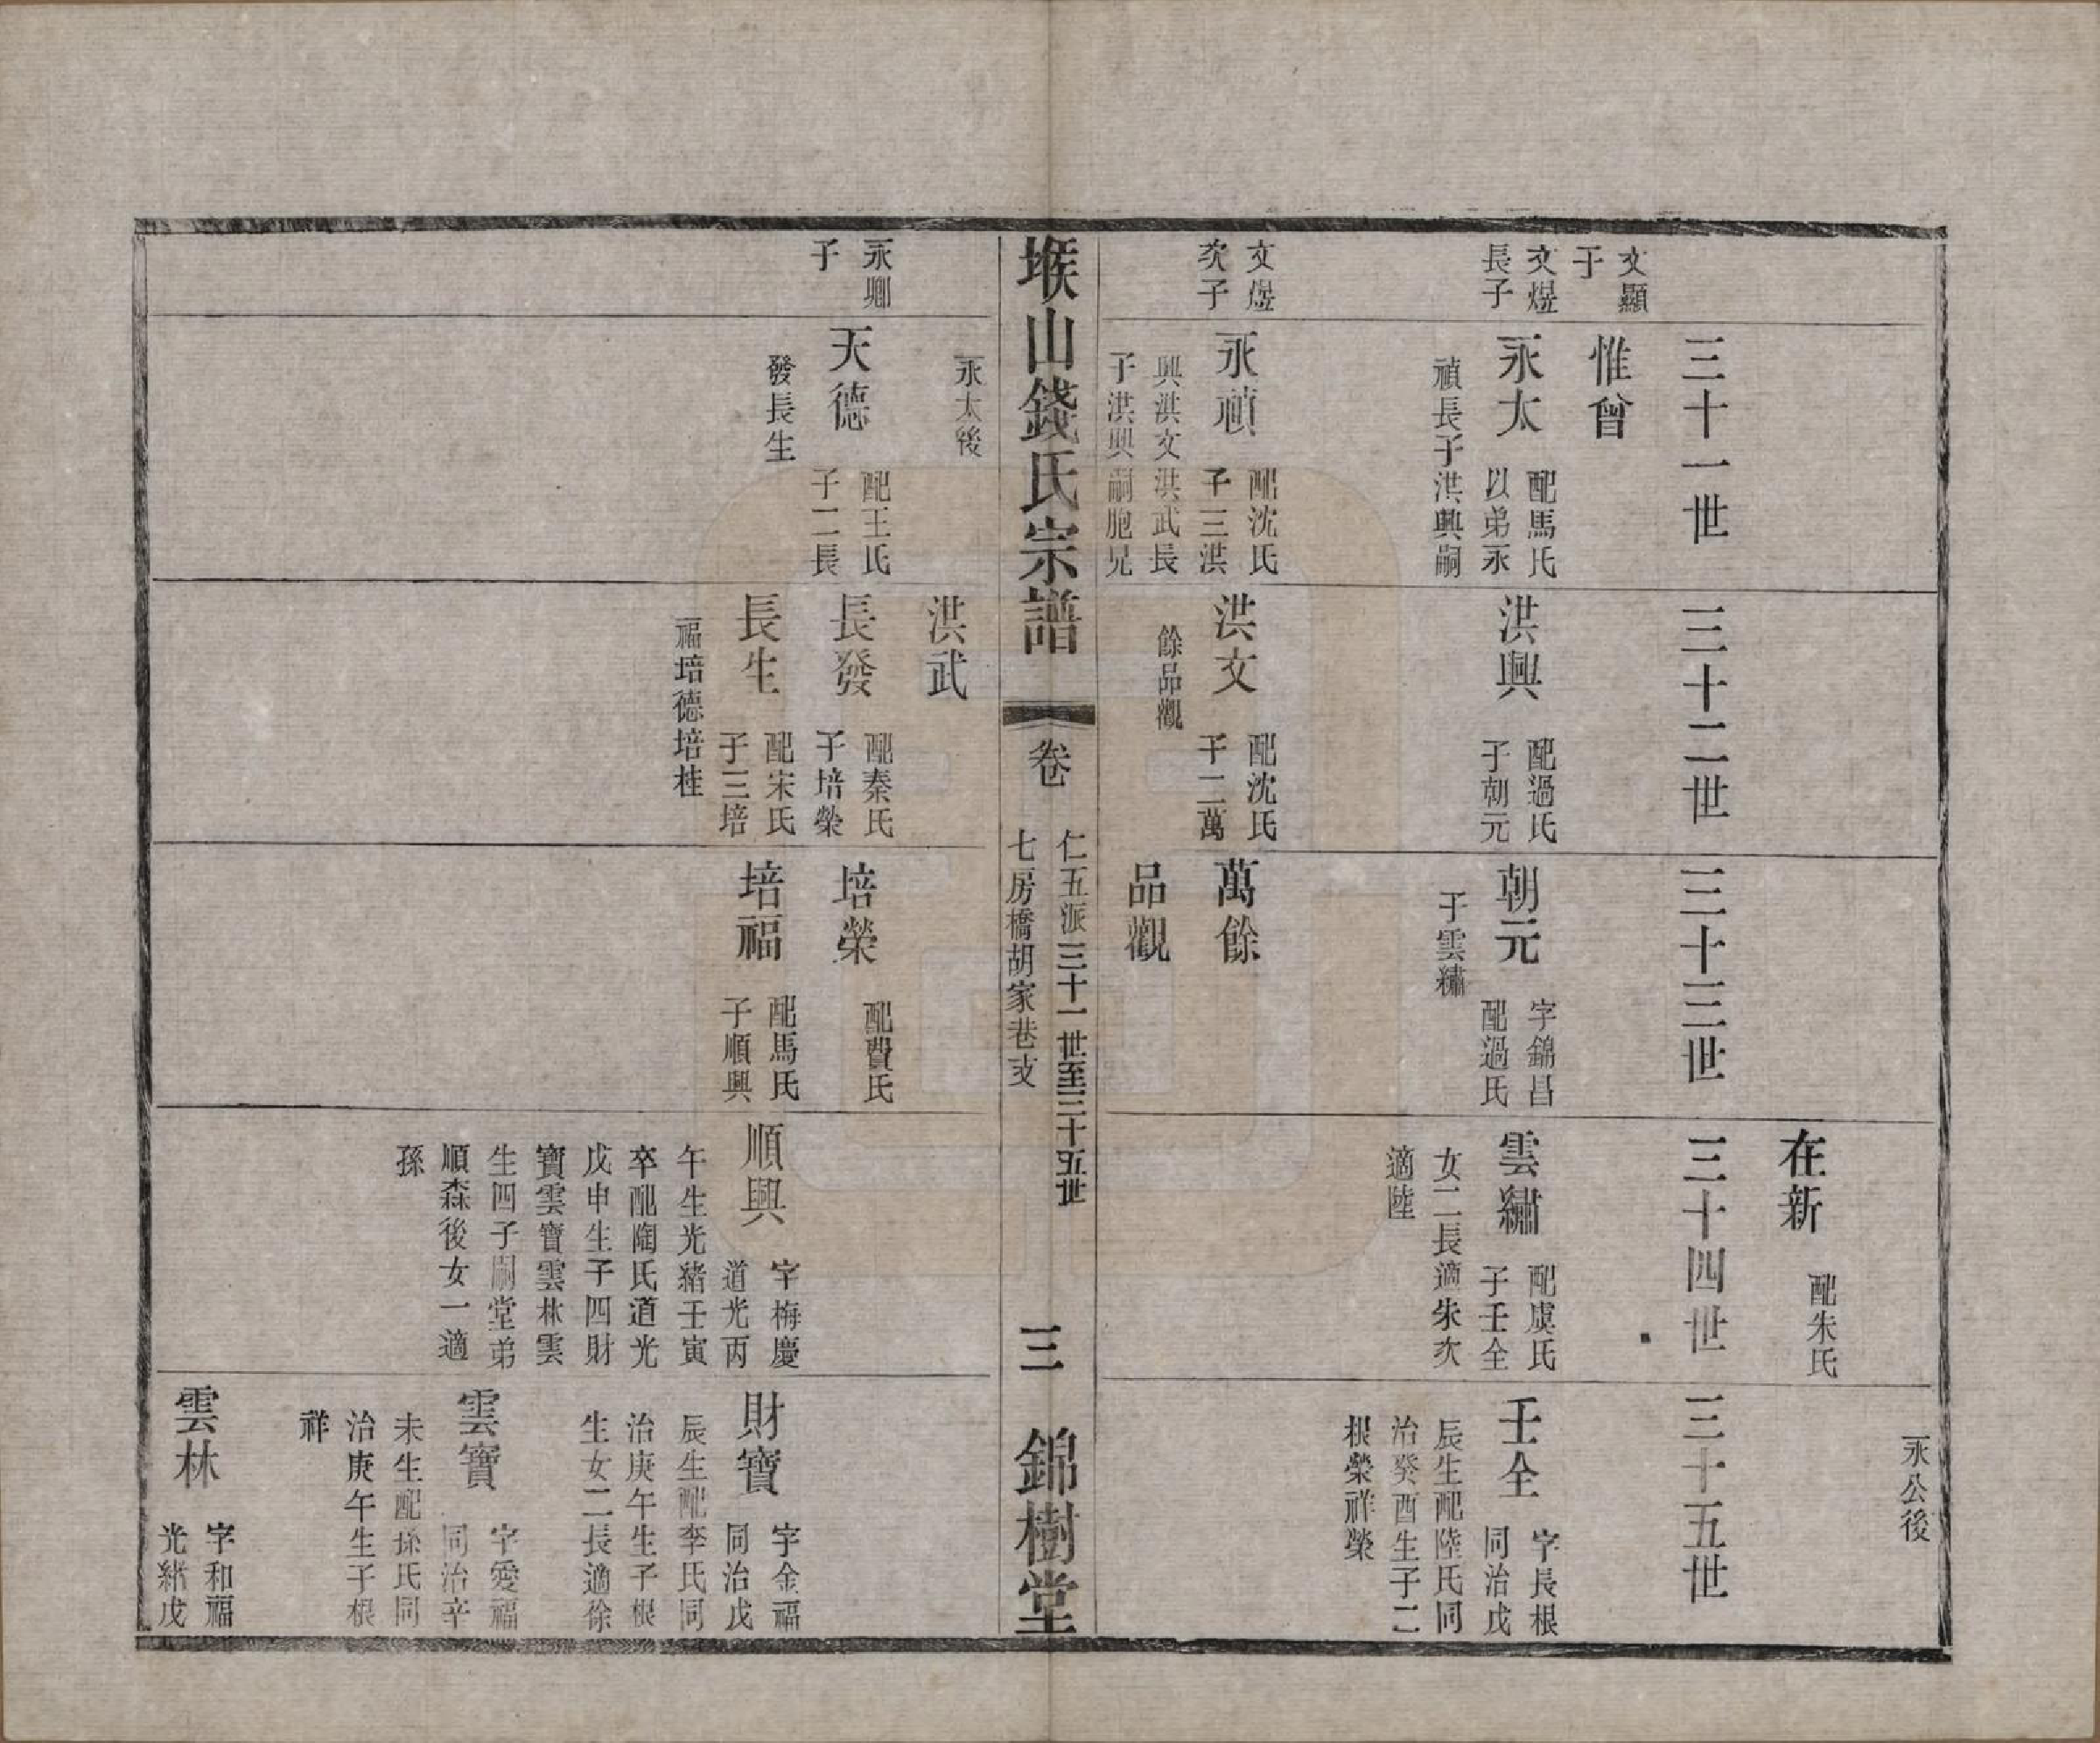 在新
配朱氏
永公後
三十一世
三十二世
三十三世
三十四世
三十五世
文顯
子
惟曾
文煜
長子
永太
配馬氏
以弟永
禎長子洪興嗣
洪興
配過氏
子朝元
朝元
字錦昌
配過氏
子雲繡
雲繡
配虞氏
子壬全
女二長適朱次
適陸
壬全
字長根
同治戊
辰生配陸氏同
治癸酉生子二
根榮祥榮
文煜
次子
永禎
配沈氏
子三洪
興洪文洪武長
子洪興嗣胞兄
洪文
配沈氏
子二萬
餘品觀
萬餘
品觀
堠山錢氏宗譜
卷
仁五派三十一世至三十五世
七房橋胡家巷支
三
錦樹堂
永太後
洪武
永卿
子
天德
配王氏
子二長
發長生
長發
配秦氏
子培榮
長生
配宋氏
子三培
福培德培桂
培榮
配費氏
培福
配馬氏
子順興
順興
字梅慶
道光丙
午生光緒壬寅
卒配陶氏道光
戊申生子四財
寶雲寶雲林雲
生四子嗣堂弟
順森後女一適
孫
財寶
字金福
同治戊
辰生配李氏同
治庚午生子根
生女二長適徐
雲寶
字愛福
同治辛
未生配孫氏同
治庚午生子根
祥
雲林
字和福
光緒戊